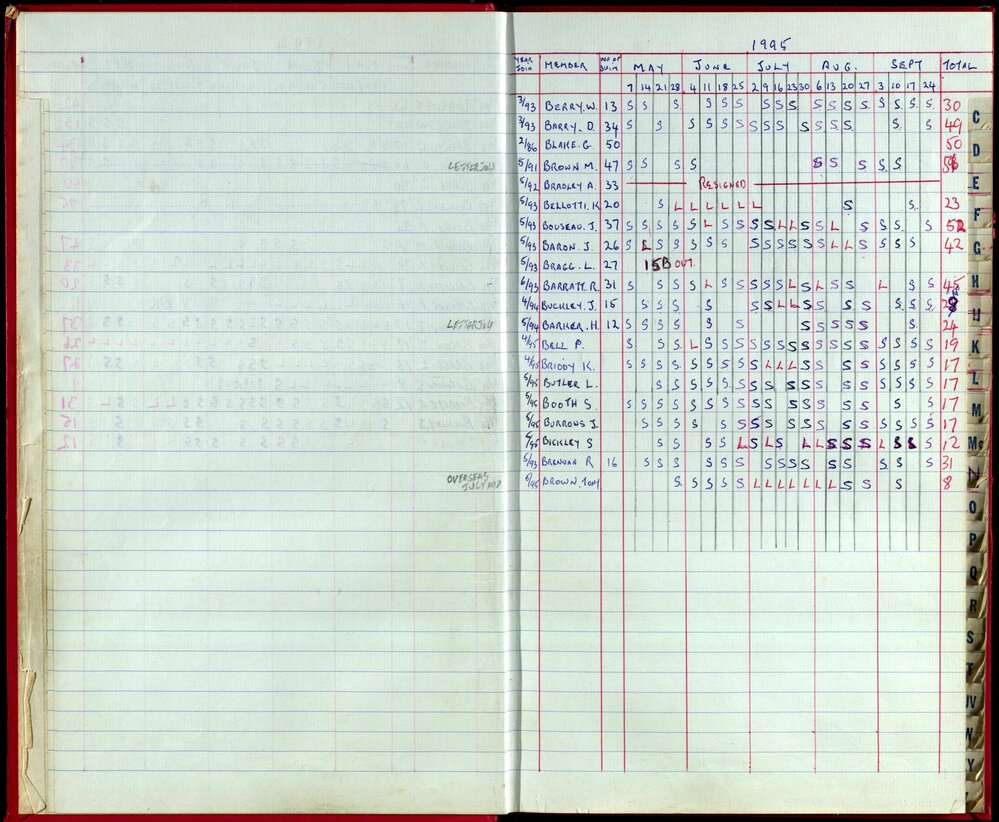 1995
YEAR JOIN MEMBER NO OF SWIM MAY JUNE JULY AUG. SEPT TOTAL
7 14 21 28 4 11 18 25 2 9 16 23 30 6 13 20 27 3 10 17 24
3/93 BERRY.W. 13 S S S S S S S S S S S S S S S S S 30
3/93 BARRY. D. 34 S S S S S S S S S S S S S S S S 49
2/86 BLAKE. G. 50 50
LETTER JULY 5/91 BROWN M. 47 S S S S S S S S S
5/92 BRADLEY A. 33 RESIGNED
5/93 BELLOTTI. K 20 S L L L L L L S S 23
5/93 BOUSEAU. J. 37 S S S S S L S S S S L L S S L S S S S 52
5/93 BARON. J. 26 S L S S S S S S S S S S S L L S S S S 42
5/93 BRAGG. L. 27 15B OUT.
6/93 BARRATT. R. 31 S S S S L S S S S S L S L S S L S S 45
4/94 BUCKLEY. J. 16 S S S S S S L L S S S S S S S
LETTER JULY 5/94 BARKER. H. 12 S S S S S S S S S S S S 24
4/95 BELL P. S S S L S S S S S S S S S S S S S S S 19
4/95 BRIODY K. S S S S S S S S S L L L S S S S S S S 17
5/95 BUTLER L. S S S S S S S S S S S S S S S S 17
5/95 BOOTH S. S S S S S S S S S S S S S S S S S 17
5/95 BURROWS J. S S S S S S S S S S S S S S S S S 17
5/95 BICKLEY S S S S S L S L S L L S S S S L S S S 12
5/93 BRENNAN R 16 S S S S S S S S S S S S S S S 31
OVERSEAS JULY AUG 5/95 BROWN. TONY S S S S S L L L L L L S S S 8
C
D
E
F
G
H
K
L
M
Mc
N
O
P
Q
R
S
T
UV
W
Y